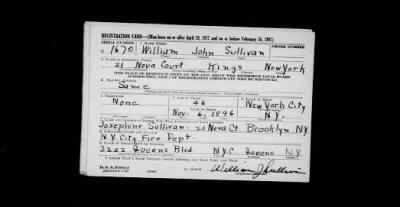 REGISTRATION CARD—(Men born on or after April 28, 1877 and on or before February 16, 1897)
SERIAL NUMBER 1. NAME (Print) ORDER NUMBER
1670 William John Sullivan
2. PLACE OF RESIDENCE (Print)
21 Nova Court Kings New York
(THE PLACE OF RESIDENCE GIVEN ON THE LINE ABOVE WILL DETERMINE LOCAL BOARD
JURISDICTION; LINE 2 OF REGISTRATION CERTIFICATE WILL BE IDENTICAL)
3. MAILING ADDRESS
Same
4. TELEPHONE 5. AGE IN YEARS 6. PLACE OF BIRTH
None 46 New York City
Nov. 6, 1896 N.Y.
Josephine Sullivan - 21 Nova Ct. Brooklyn N.Y.
N.Y. City Fire Dept.
3202 Queens Blvd. N.Y.C Queens N.Y.
I AFFIRM THAT I HAVE VERIFIED ABOVE ANSWERS AND THAT THEY ARE TRUE.
William J Sullivan